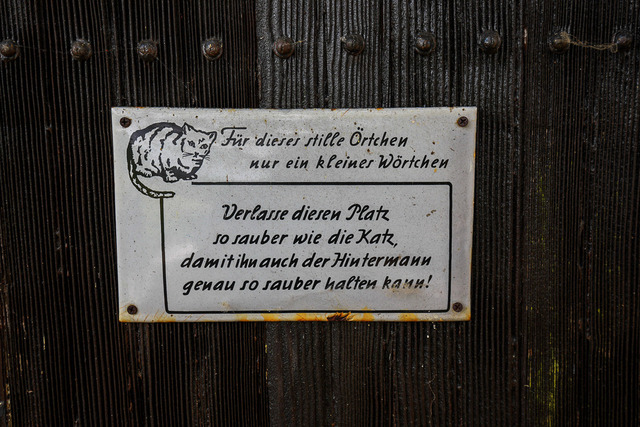 Für dieses stille Örtchen
nur ein kleines Wörtchen
Verlasse diesen Platz
so sauber wie die Katz,
damit ihn auch der Hintermann
genau so sauber halten kann!